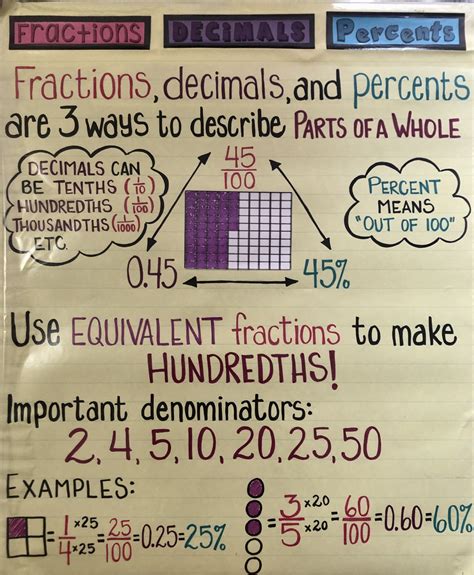 Fractions DECIMALS Percents
Fractions, decimals, and percents
are 3 ways to describe PARTS OF A WHOLE
DECIMALS CAN
BE TENTHS (1/10)
HUNDREDTHS (1/100)
THOUSANDTHS (1/1000)
ETC.
45/100
PERCENT
MEANS
"OUT OF 100"
0.45
45%
Use EQUIVALENT fractions to make
HUNDREDTHS!
Important denominators:
2, 4, 5, 10, 20, 25, 50
EXAMPLES:
= 1/4 ×25 ×25 = 25/100 = 0.25 = 25%
= 3/5 ×20 ×20 = 60/100 = 0.60 = 60%